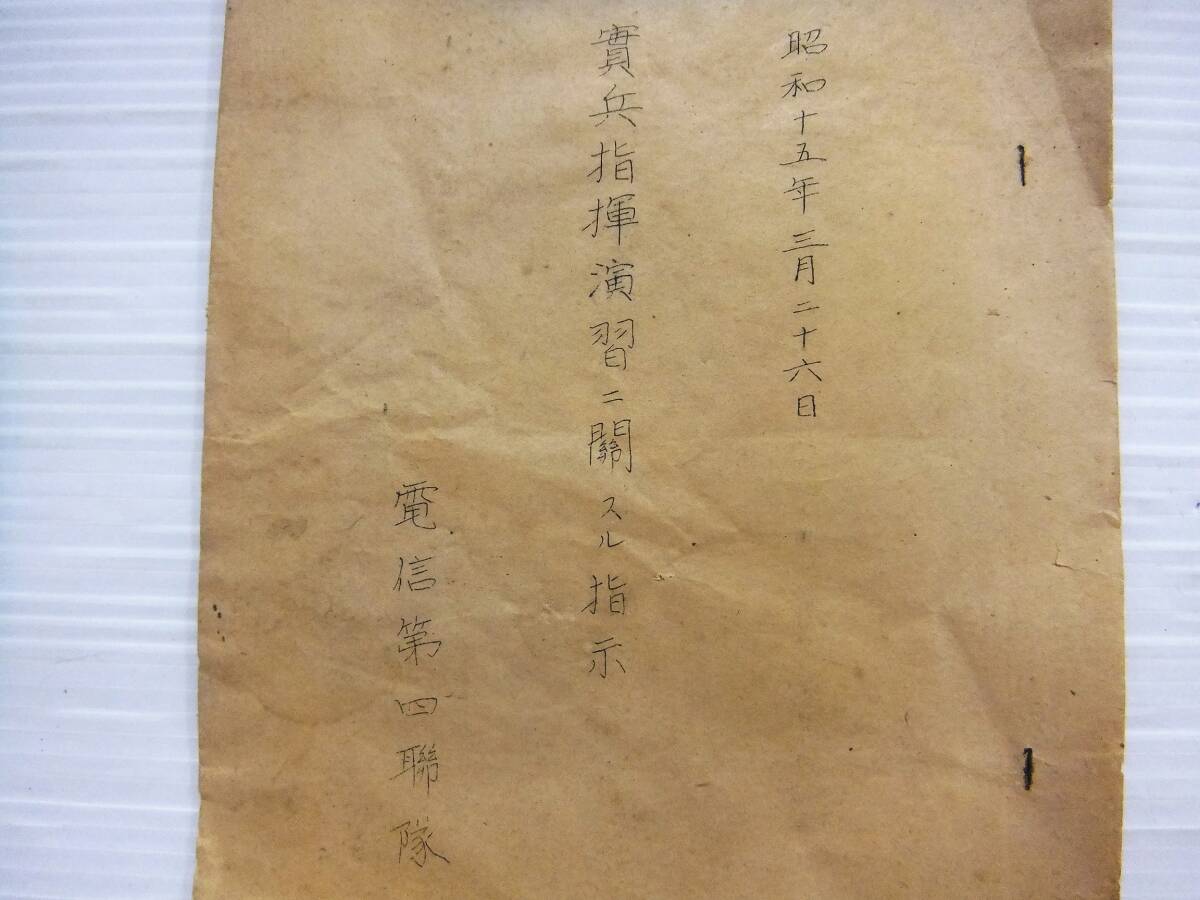 昭和十五年三月二十六日
實兵指揮演習ニ關スル指示
電信第四聯隊